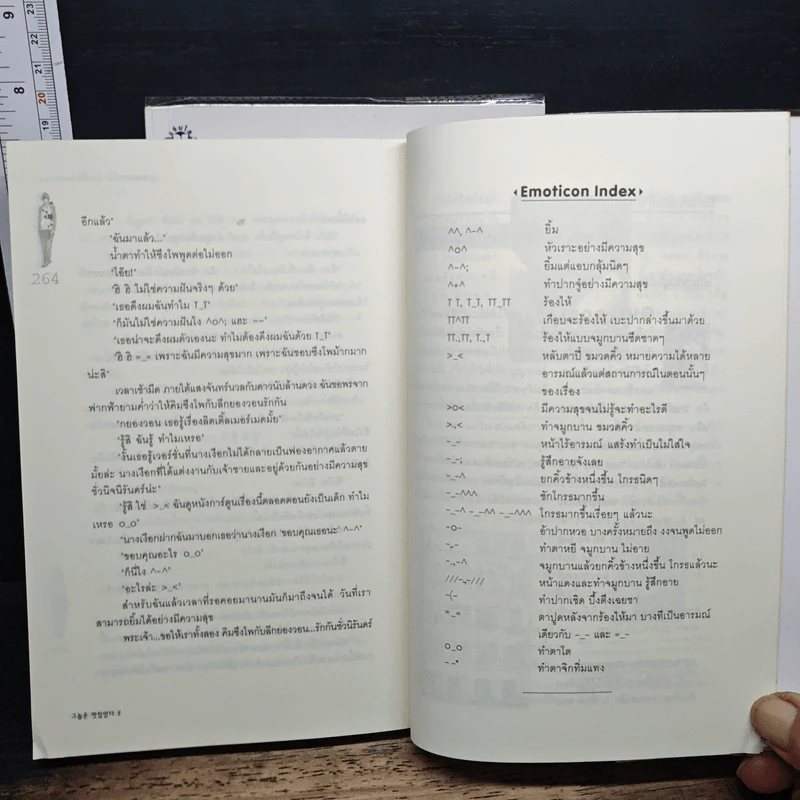 264
อีกแล้ว'
'ฉันมาแล้ว...'
น้ำตาทำให้ซึงไพพูดต่อไม่ออก
'โอ๊ย!'
'ฮิ ฮิ ไม่ใช่ความฝันจริงๆ ด้วย'
'เธอดึงผมฉันทำไม T_T'
'ก็มันไม่ใช่ความฝันไง ^o^; แฮะ --'
'เธอน่าจะดึงผมตัวเองนะ ทำไมต้องดึงผมฉันด้วย T_T'
'ฮิ ฮิ =_= เพราะฉันมีความสุขมาก เพราะฉันชอบซึงไพม้ากมาก
น่ะสิ'
เวลาเช้ามืด ภายใต้แสงจันทร์นวลกับดาวนับล้านดวง ฉันขอพรจาก
ฟากฟ้ายามค่ำว่าให้คิมซึงไพกับลีกยองวอนรักกัน
'กยองวอน เธอรู้เรื่องลิตเติ้ลเมอร์เมดมั้ย'
'รู้สิ ฉันรู้ ทำไมเหรอ'
'งั้นเธอรู้เวอร์ชั่นที่นางเงือกไม่ได้กลายเป็นฟองอากาศแล้วตาย
มั้ยล่ะ นางเงือกที่ได้แต่งงานกับเจ้าชายและอยู่ด้วยกันอย่างมีความสุข
ชั่วนิจนิรันดร์น่ะ'
'รู้สิ ใช่ >_< ฉันดูหนังการ์ตูนเรื่องนี้ตลอดตอนยังเป็นเด็ก ทำไม
เหรอ o_o'
'นางเงือกฝากฉันมาบอกเธอว่านางเงือก 'ขอบคุณเธอนะ' ^-^'
'ขอบคุณอะไร o_o'
'ก็นี่ไง ^-^'
'อะไรล่ะ >_<'
สำหรับฉันแล้วเวลาที่รอคอยมานานมันก็มาถึงจนได้ วันที่เรา
สามารถยิ้มได้อย่างมีความสุข
พระเจ้า...ขอให้เราทั้งสอง คิมซึงไพกับลีกยองวอน...รักกันชั่วนิรันดร์
Emoticon Index
^^, ^-^ ยิ้ม
^o^ หัวเราะอย่างมีความสุข
^-^; ยิ้มแต่แอบกลุ้มนิดๆ
^+^ ทำปากจู๋อย่างมีความสุข
T T, T_T, TT_TT ร้องไห้
TT^TT เกือบจะร้องไห้ เบะปากล่างขึ้นมาด้วย
TT.,TT, T.,T ร้องไห้แบบจมูกบานซีดซาดๆ
>_< หลับตาปี๋ ขมวดคิ้ว หมายความได้หลาย
อารมณ์แล้วแต่สถานการณ์ในตอนนั้นๆ
ของเรื่อง
>o< มีความสุขจนไม่รู้จะทำอะไรดี
>.,< ทำจมูกบาน ขมวดคิ้ว
-_- หน้าไร้อารมณ์ แสร้งทำเป็นไม่ใส่ใจ
-_-; รู้สึกอายจังเลย
-_-^ ยกคิ้วข้างหนึ่งขึ้น โกรธนิดๆ
-_-^^^ ชักโกรธมากขึ้น
-_-^ -_-^^ -_-^^^ โกรธมากขึ้นเรื่อยๆ แล้วนะ
-o- อ้าปากหวอ บางครั้งหมายถึง งงจนพูดไม่ออก
-,.- ทำตาหยี จมูกบาน ไม่อาย
-.,-^ จมูกบานแล้วยกคิ้วข้างหนึ่งขึ้น โกรธแล้วนะ
///-,.-/// หน้าแดงและทำจมูกบาน รู้สึกอาย
-(- ทำปากเชิด บึ้งตึงเฉยชา
=_= ตาปูดหลังจากร้องไห้มา บางทีเป็นอารมณ์
เดียวกับ -_- และ =_-
o_o ทำตาโต
--* ทำตาจิกทิ่มแทง